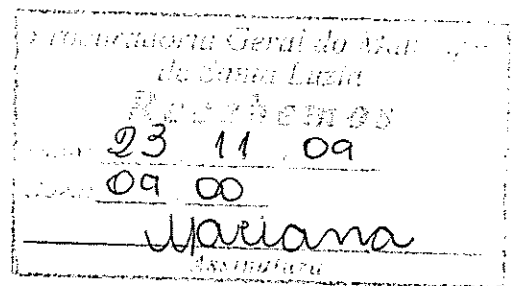 Procuradoria Geral do
de Santa Luzia
Recebemos
23 11 09
09 00
Mariana
Assinatura